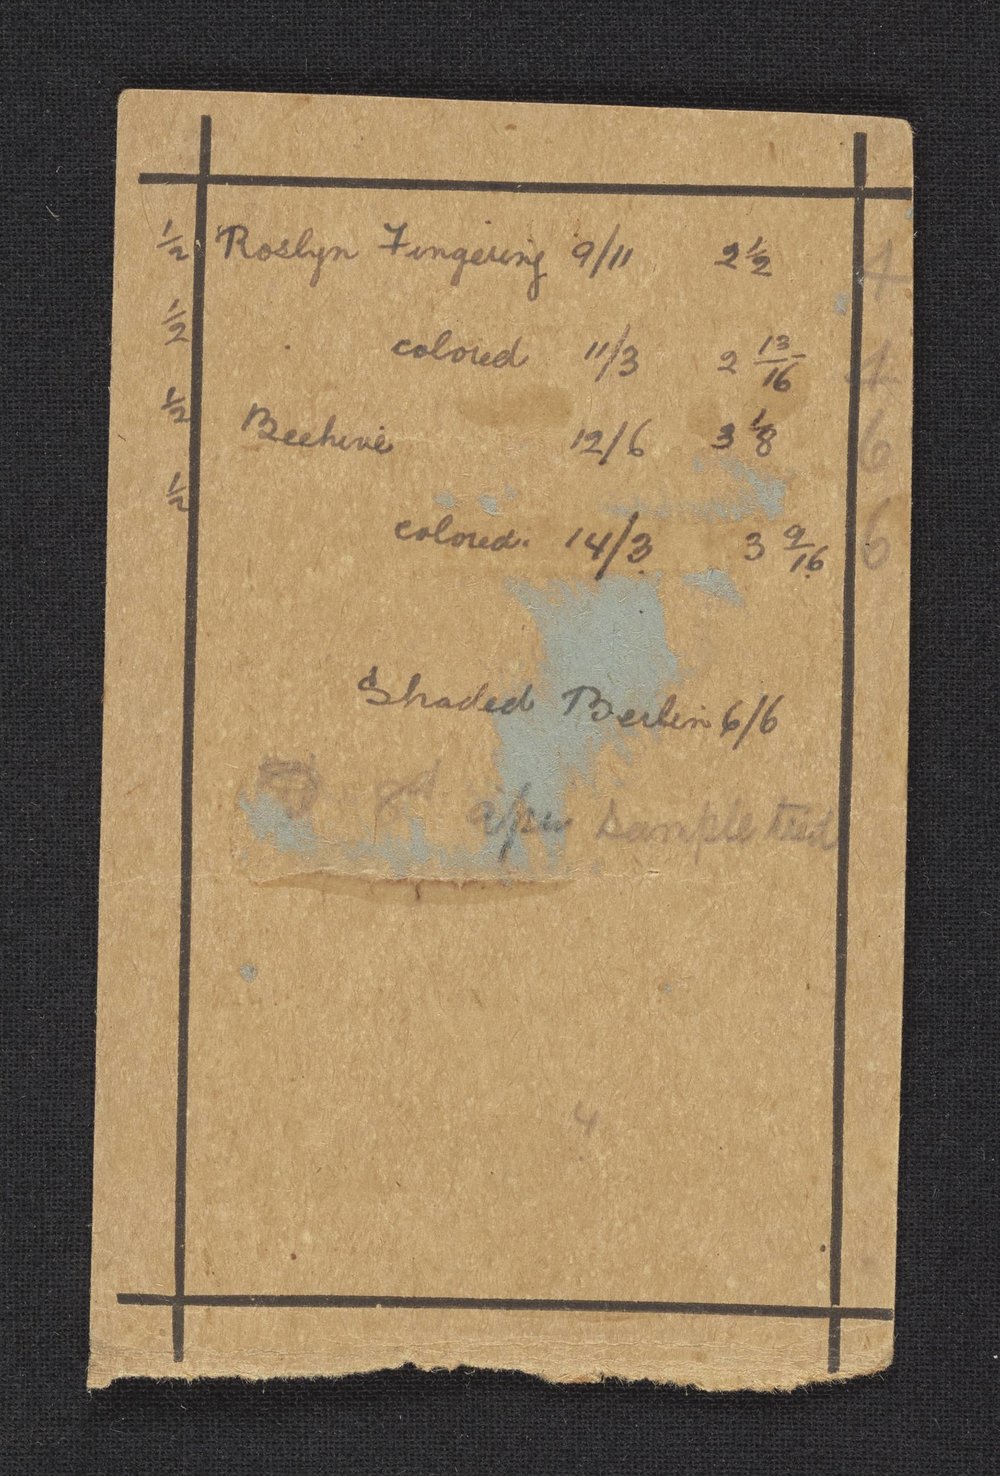 ½ Roslyn Fingering 9/11 2½ 4
½ colored 11/3 2 13/16 4
½ Beehive 12/6 3⅛ 6
½ colored. 14/3 3 9/16 6
Shaded Berlin 6/6
sample
4